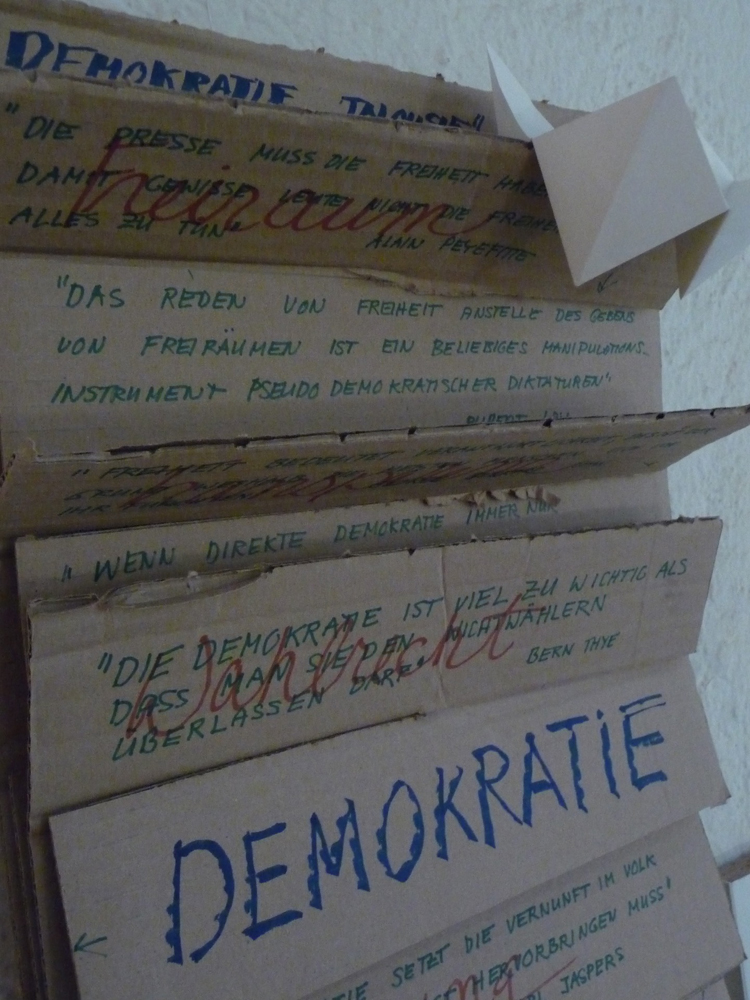 DEMOKRATIE JALOUSIE"
"DIE PRESSE MUSS DIE FREIHEIT HABE
DAMIT GEWISSE LEUTE NICHT DIE FREIHE
ALLES ZU TUN"
Freiraum
ALAIN PEYEFITTE
"DAS REDEN VON FREIHEIT ANSTELLE DES GEBENS
VON FREIRÄUMEN IST EIN BELIEBIGES MANIPULATIONS-
INSTRUMENT PSEUDO DEMOKRATISCHER DIKTATUREN"
"FREIHEIT BEDEUTET
"WENN DIREKTE DEMOKRATIE IMMER NUR
"DIE DEMOKRATIE IST VIEL ZU WICHTIG ALS
DASS MAN SIE DEN NICHTWÄHLERN
ÜBERLASSEN DARF"
Wahlrecht
BERN THYE
DEMOKRATIE
TIE SETZT DIE VERNUNFT IM VOLK
HERVORBRINGEN MUSS"
JASPERS